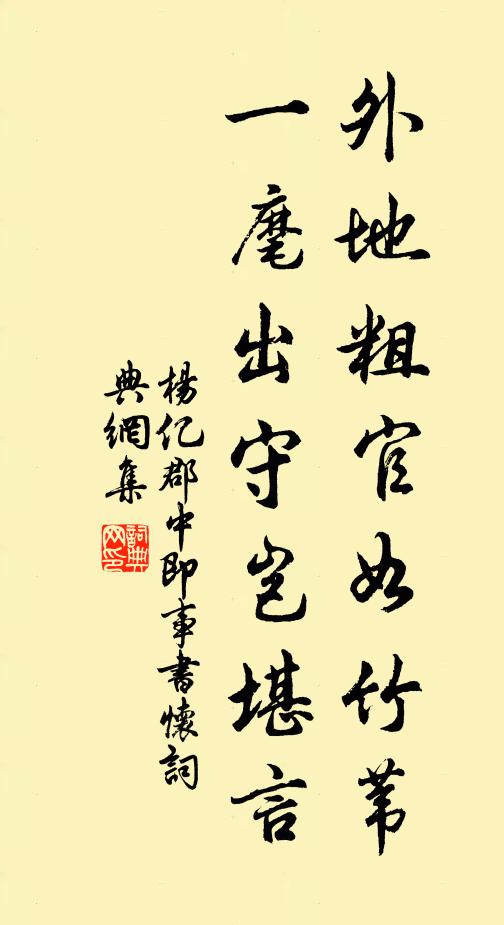 外地粗官如竹苇
一麾出守岂堪言
杨亿郡中即事书怀词
典網集
詞典网印